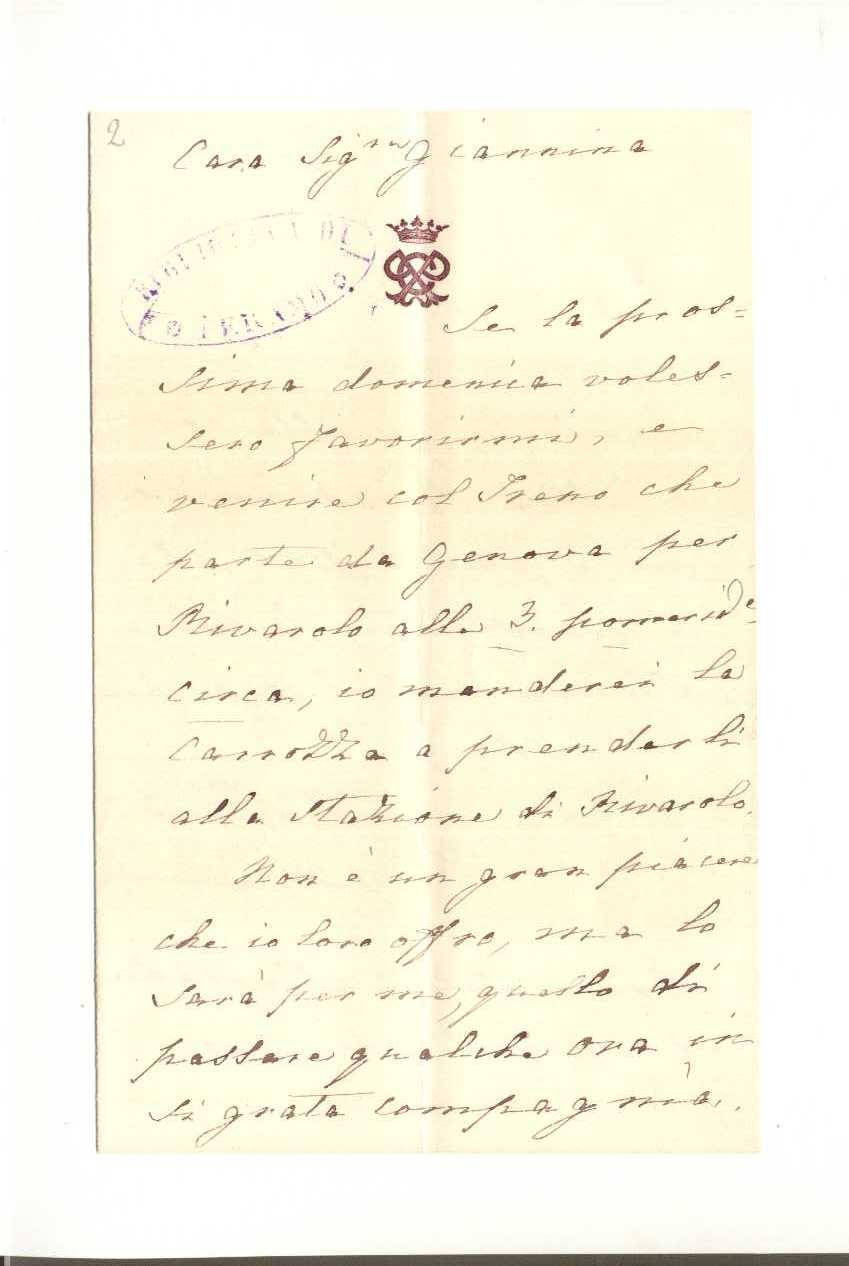 2
Cara Sig.ra Giannina
BIBLIOTECA DI
TERAMO
Se la pros=
sima domenica voles=
sero favorirmi, e
venire col Treno che
parte da Genova per
Rivarolo alle 3. pomerid.e
circa, io manderei la
Carrozza a prenderli
alla Stazione di Rivarolo.
Non è un gran piacere
che io loro offro, ma lo
sarà per me, quello di
passare qualche ora in
si grata compagnia.